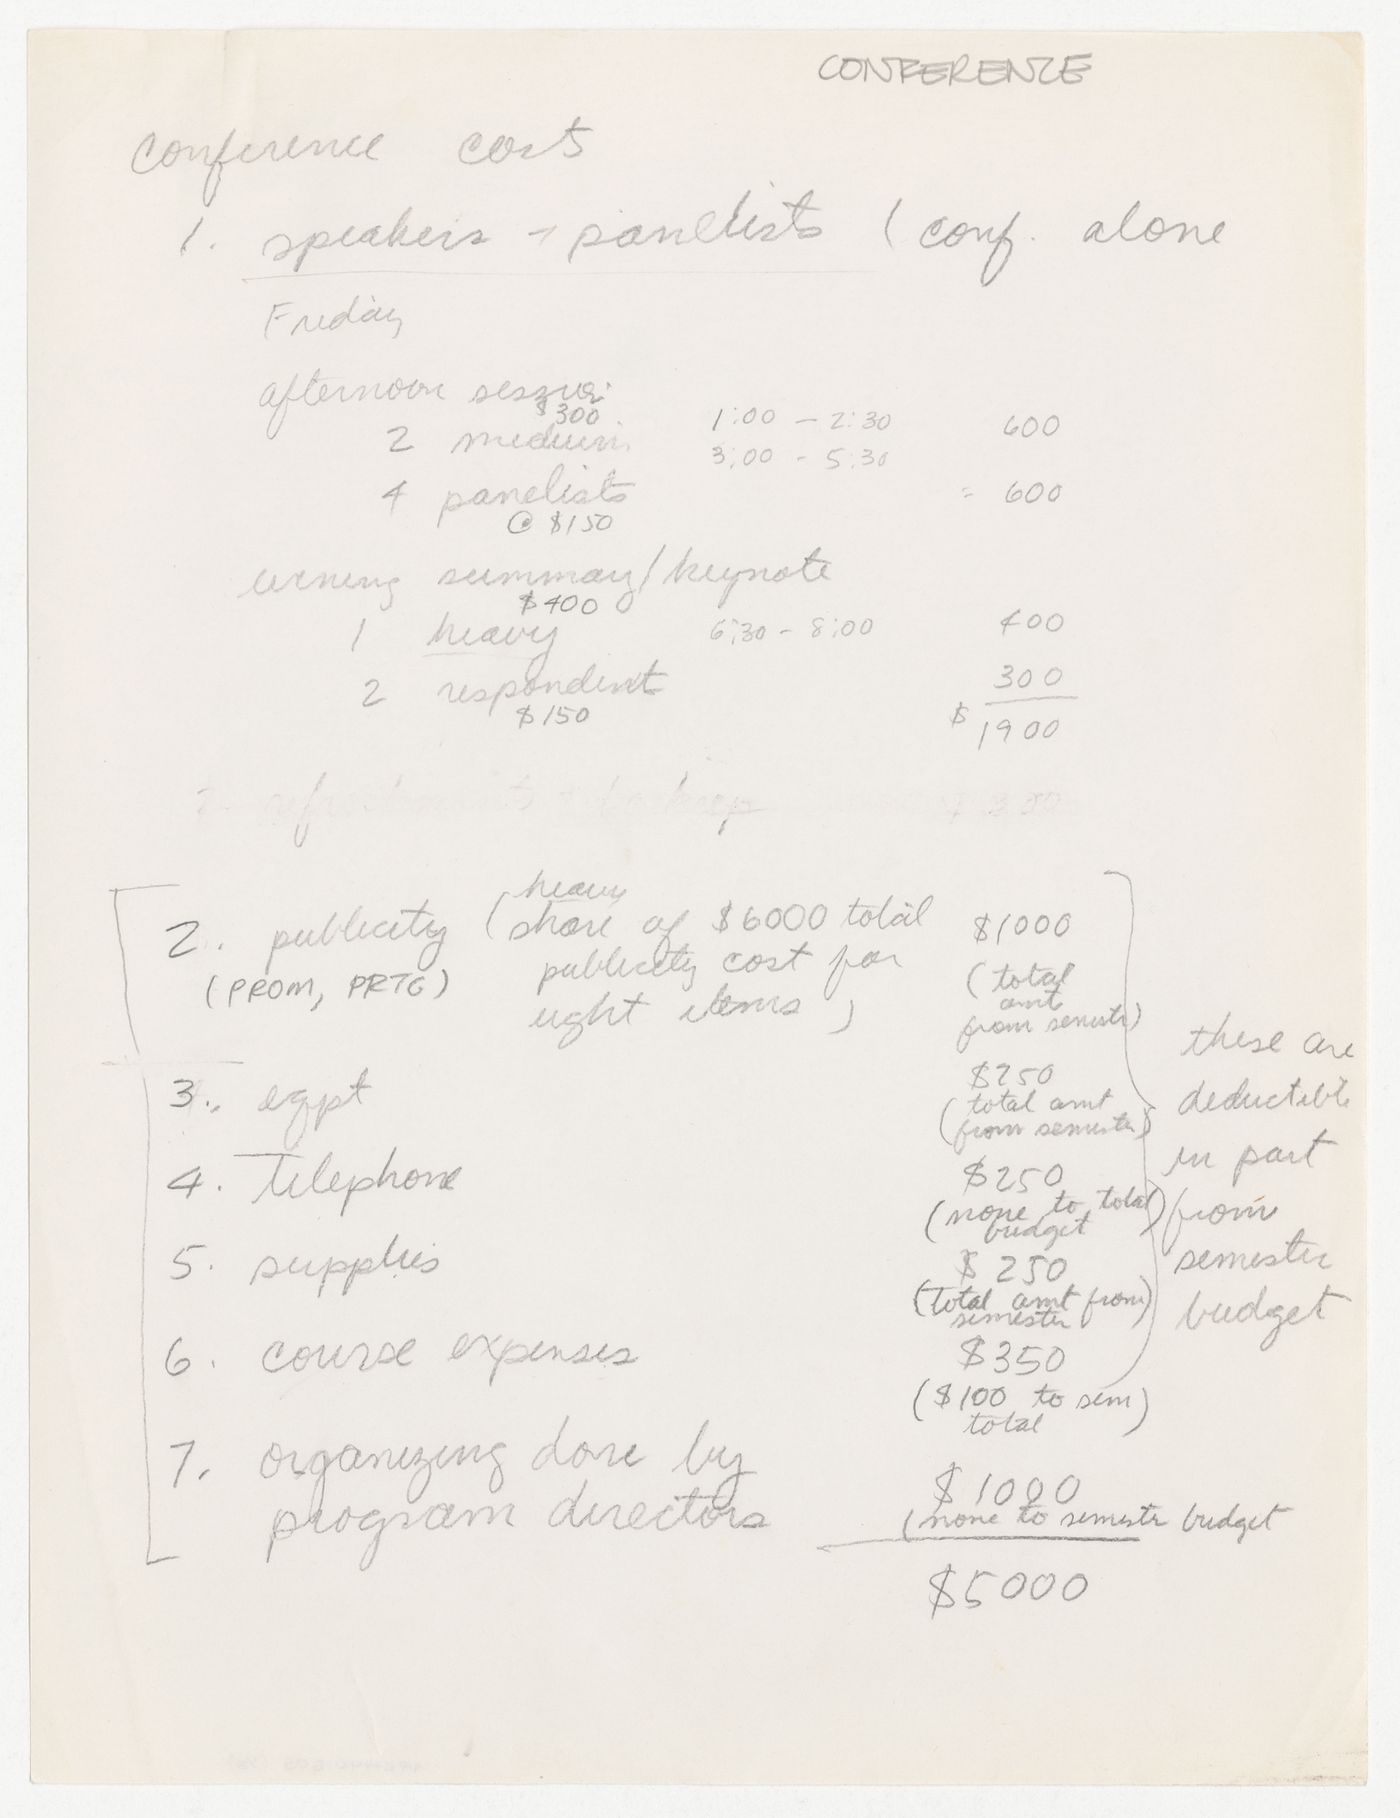 CONFERENCE
conference cost
1. speakers + panelists (conf. alone
Friday
afternoon session
$300
2 medium 1:00 - 2:30 600
3:00 - 5:30
4 panelists = 600
@ $150
evening summary/keynote
$400
1 heavy 6:30 - 8:00 400
2 respondent 300
$150
$ 1900
2. refreshments $300
heavy
2. publicity (share of $6000 total $1000
(PROM, PRTG) publicity cost for (total
eight items) amt
from semestr)
3. eqpt $250
(total amt
from semester)
4. telephone $250
(none to total
budget
5. supplies $250
(total amt from
semester)
6. course expenses $350
($100 to sem)
total
these are
deductible
in part
from
semester
budget
7. organizing done by
program directors $1000
(none to semester budget
$5000